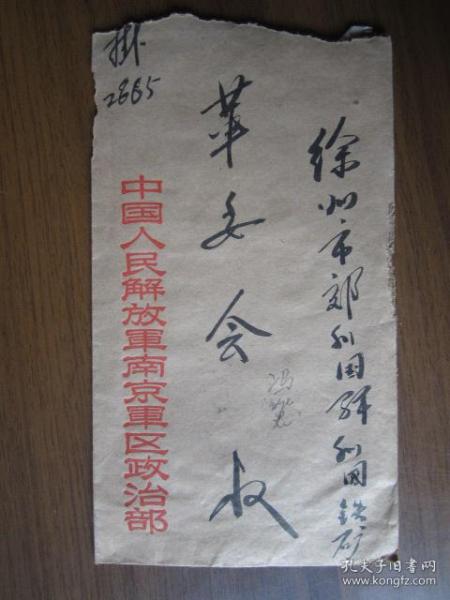 徐州市郊利国驿利国铁矿
革委会 收
中国人民解放軍南京軍区政治部
掛
孔夫子旧书网
www.kongfz.com